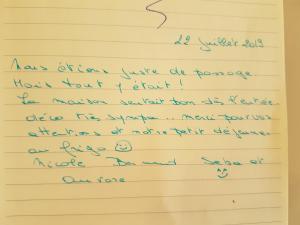 22 Juillet 2019
Nous étions juste de passage.
Mais tout y était !
La maison sentait bon dès l'entrée
déco très sympa .. merci pour vos
attentions et notre petit déjeuner
au frigo ☺
Nicole Seba et
Aurore